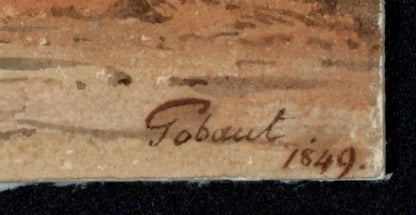 Gobaut
1849.